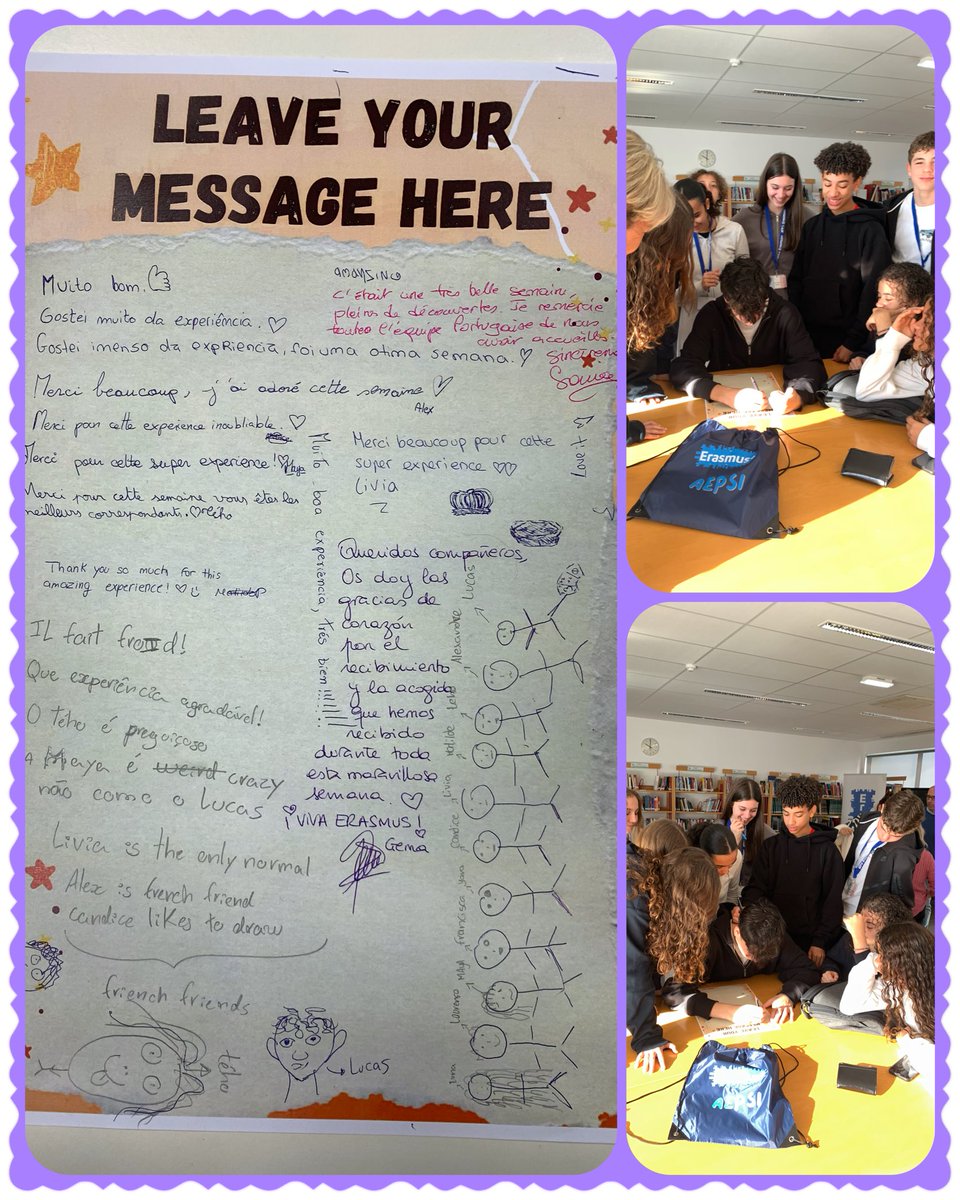 LEAVE YOUR
MESSAGE HERE
Muito bom.
Gostei muito da experiência. ♡
Gostei imenso da expRiencia, foi uma otima semana. ♡
c'était une très belle semaine,
pleins de découvertes. Je remercie
toutes l'équipe Portugaise de nous
avoir accueillis
Merci beaucoup, j'ai adoré cette semaine ♡
Alex
Merci pour cette experience inoubliable. ♡
Merci pour cette super experience ! ♡
Merci pour cette semaine vous êtes les
meilleurs correspondants. ♡ Ého
Thank you so much for this
amazing experience! ♡
Merci beaucoup pour cette
super experience ♡♡
Livia
Love
Muito boa experiência, très bien !!!!!!!
Queridos compañeros,
Os doy las
gracias de
corazón
por el
recibimiento
y la acogida
que hemos
recibido
durante toda
esta maravillosa
semana. ♡
¡VIVA ERASMUS!
Gema
IL fait froid!
Que experiência agradável!
O Tého é preguiçoso
A Maya é weird crazy
não como o Lucas
Livia is the only normal
Alex is french friend
candice likes to draw
friench friends
tého
Lucas
Lucas
Alexandre
Livia
Candice
Yara
francisca
MAYA
Lourenço
Erasmus
AEPSI
Erasmus
AEPSI